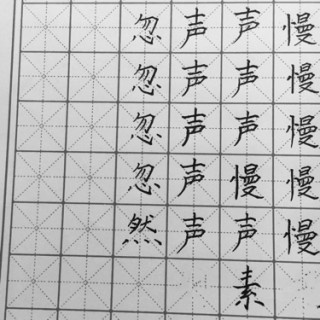 慢慢慢慢慢
声声声慢声素
声声声声声
忽忽忽忽然